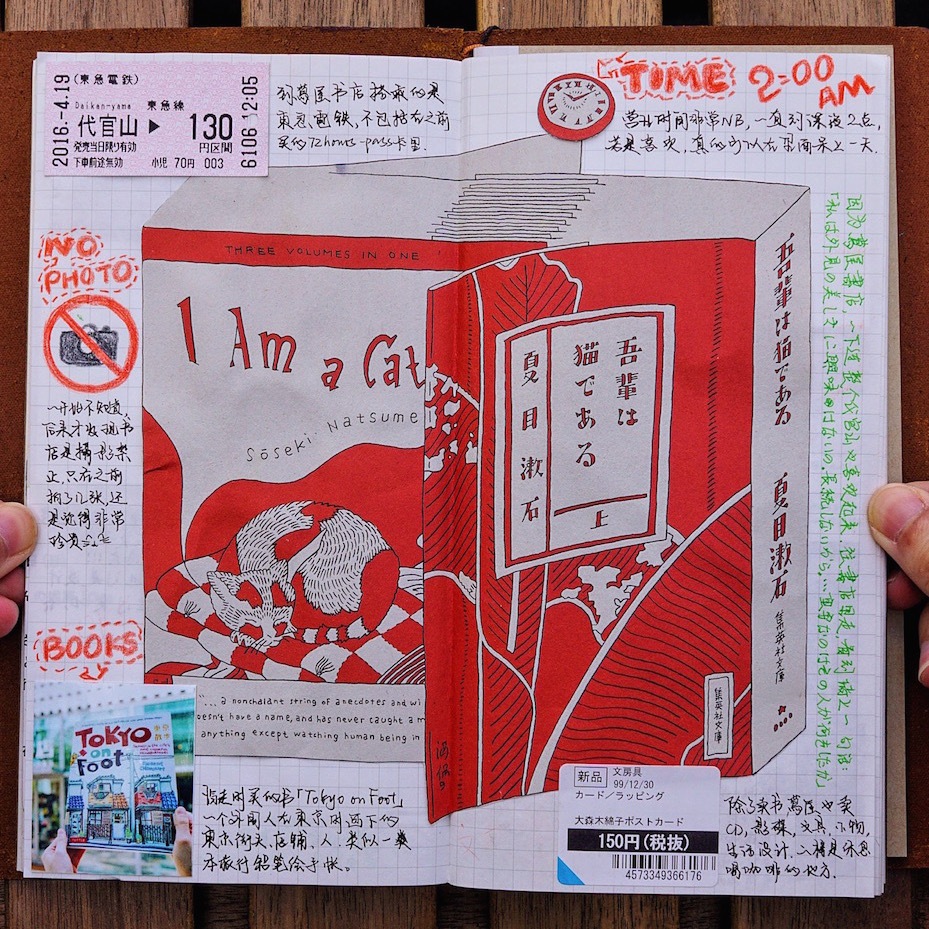 2016.-4.19
(東急電鉄)
Daikan-yama 東急線
代官山 ▶ 130
円区間
発売当日限り有効
下車前途無効 小児 70円 003
6106 12:05
到蔦屋书店搭乘的是
東急電鉄,不包括在之前
买的72hours-pass卡里.
TIME 2:00
AM
营业时间非常NB,一直到深夜2点,
若是喜欢,真的可以在里面呆上一天.
NO
PHOTO
一开始不知道,
后来才发现书
店是攝影禁
止,只有之前
拍了几张,还
是觉得非常
珍贵
THREE VOLUMES IN ONE
I Am a Cat
Sōseki Natsume
"... a nonchalant string of anecdotes and wi
doesn't have a name, and has never caught a m
anything except watching human being in
吾輩は
猫である
上
夏目漱石
集英社文庫
吾輩は猫である 夏目漱石 集英社文庫
因为蔦屋書店,一下连整个代官山也喜欢起来.在書店里走,看到墙上一句话:
「私は外見の美しさに興味
BOOKS
TOKYO
on
Foot
我走时买的书「Tokyo on Foot」
一个外国人在東京时画下的
東京街头、店铺、人.类似一类
本旅行铅笔绘手帐.
新品 文房具
99/12/30
カード/ラッピング
大森木綿子ポストカード
150円(税抜)
4573349366176
除了读书蔦屋也卖
CD,影碟,文具,小物,
生活设计.二楼是休息
喝咖啡的地方.